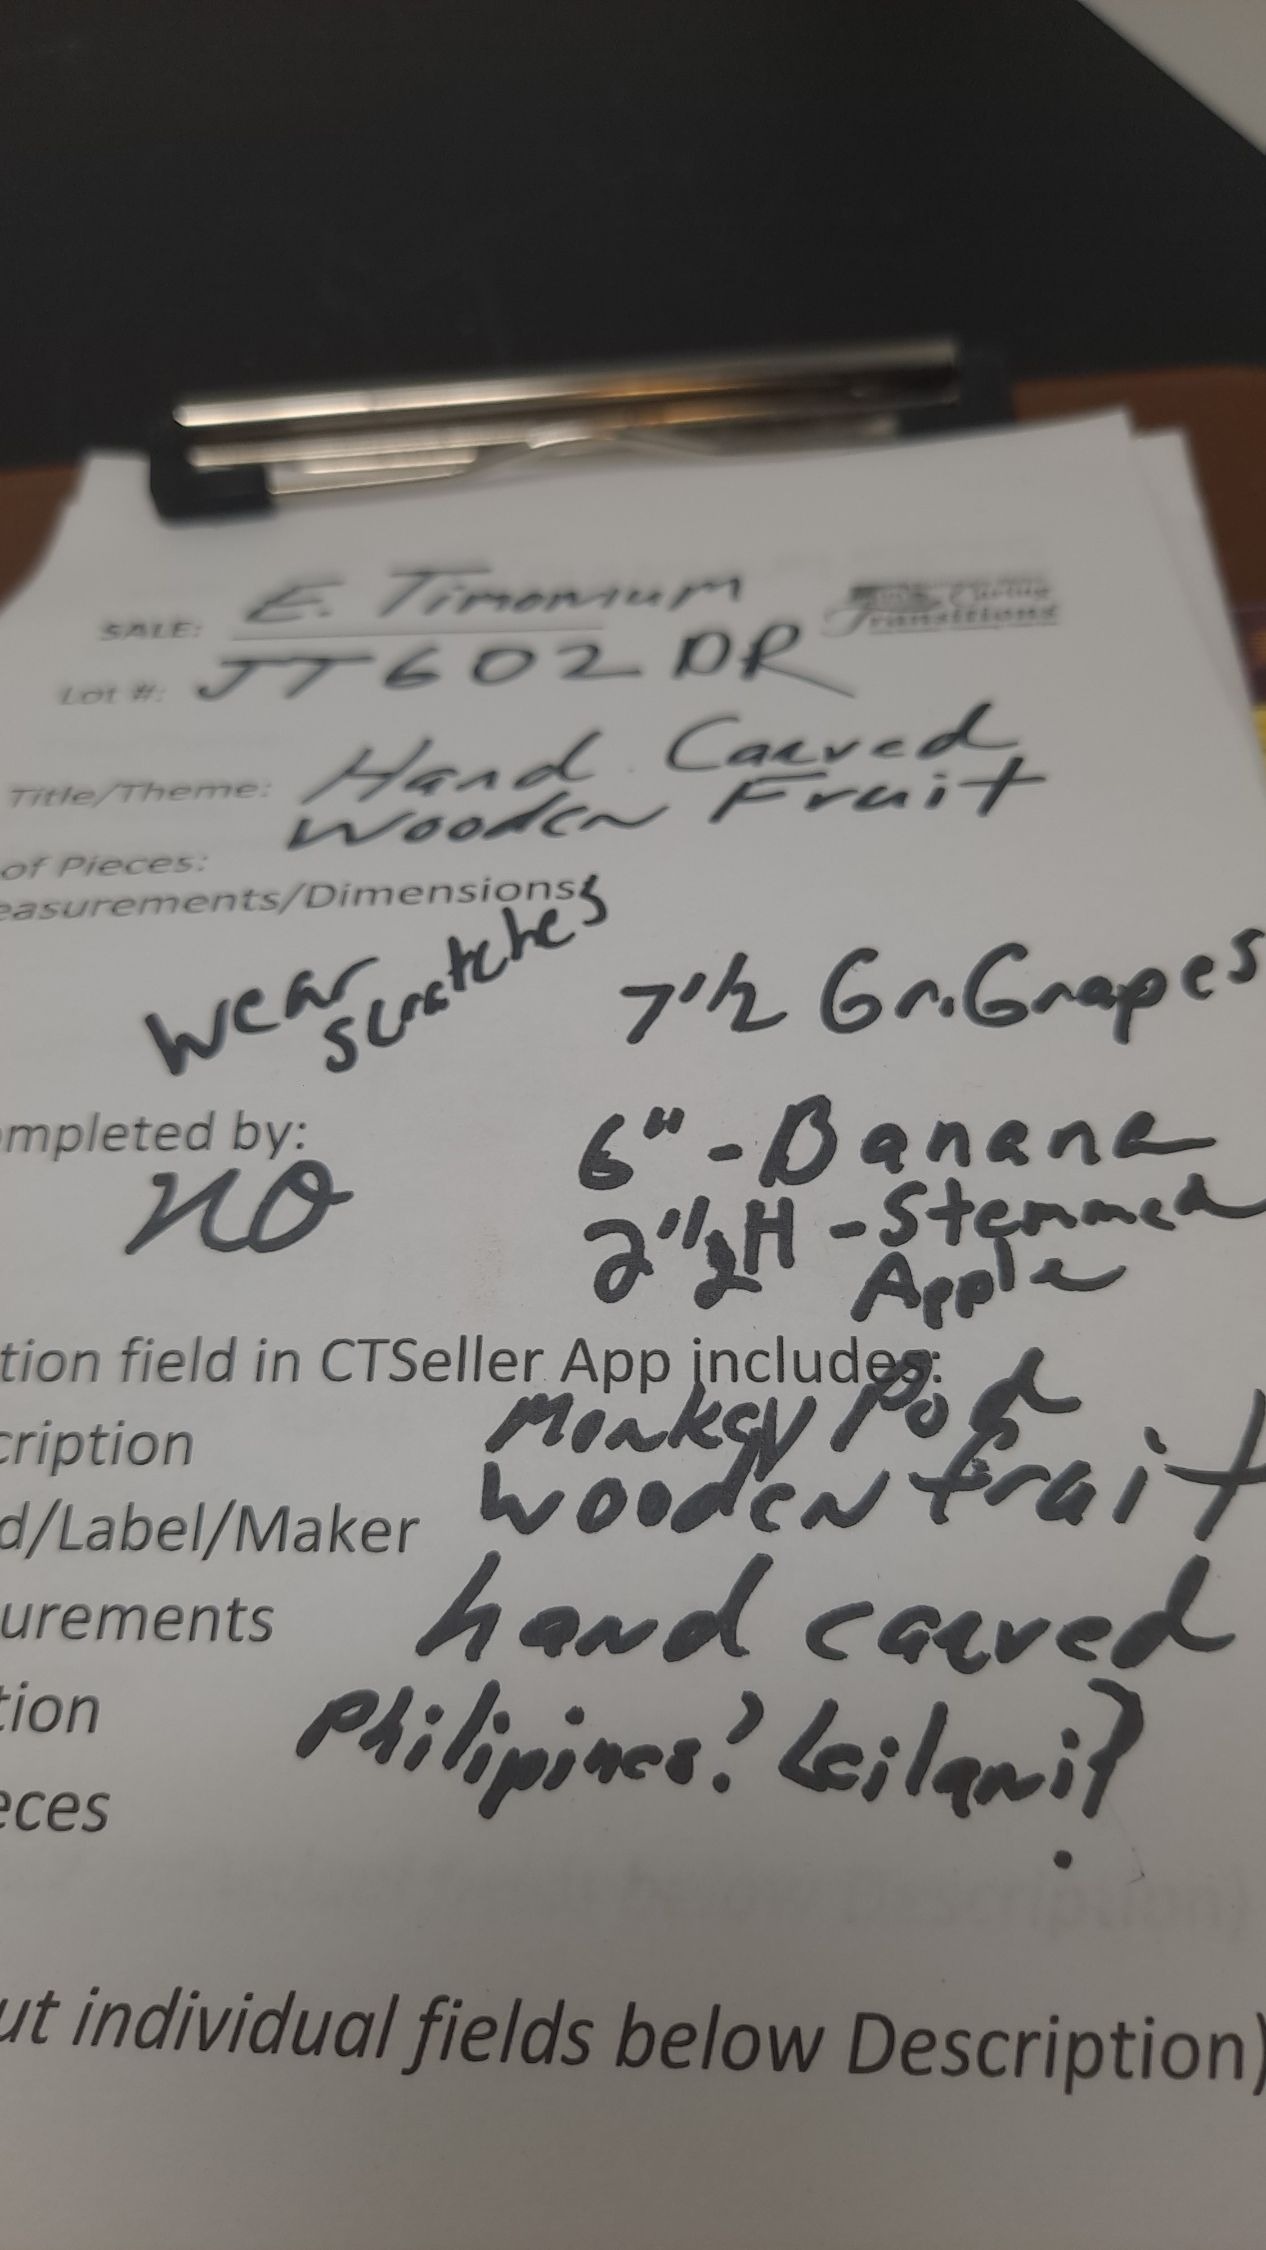 SALE: E. Timonium
Caring
Transitions
Lot #: JT602 DR
Title/Theme: Hand Carved
Wooden Fruit
of Pieces:
easurements/Dimensions
Wear
scratches
7"½ Gr. Grapes
ompleted by:
NO
6" - Banana
2"½ H - Stemmed
Apple
tion field in CTSeller App includes:
Monkey Pod
cription
Wooden fruit
d/Label/Maker
hand carved
urements
tion
Philipines? Leilani?
eces
ut individual fields below Description)